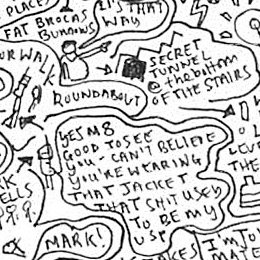 PLACE
FAT BROCAS
BUMOWS
IT'S THAT
WAY
SECRET
TUNNEL
@ the bottom
OF THE STAIRS
UR WALK
ROUNDABOUT
YES M8
GOOD TO SEE
YOU - CAN'T BELIEVE
YOU'RE WEARING
THAT JACKET
THAT SHIT USED
TO BE MY
USP
THE
ELLS
MARK!
I'M JO
MATE